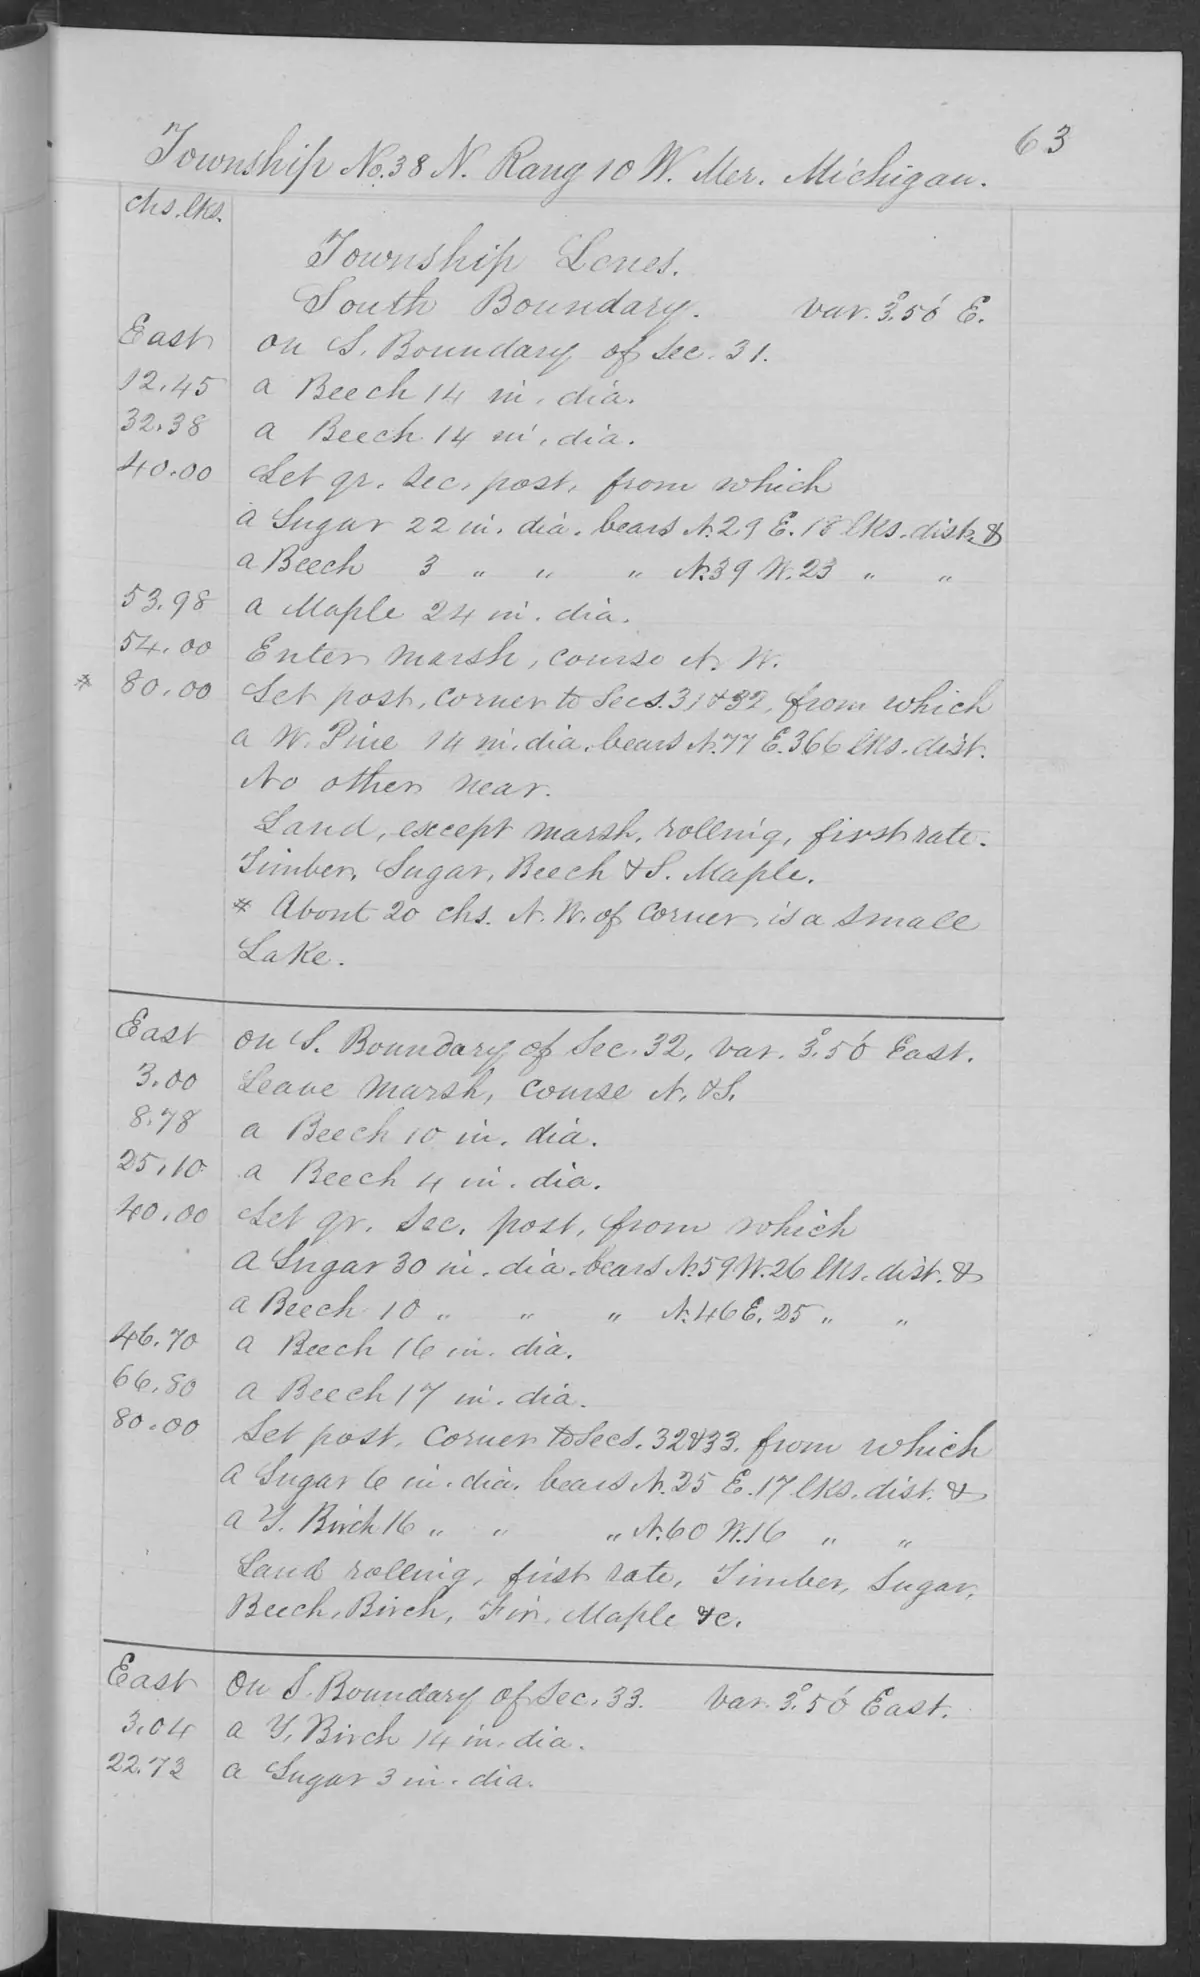 63
Township No. 38 N. Rang 10 W. Mer. Michigan.
chs. lks.
Township Lines.
South Boundary. Var. 3°. 50' E.
East on S. Boundary of Sec. 31.
12.45 a Beech 14 in. dia.
32.38 a Beech 14 in. dia.
40.00 Set qr. Sec. post, from which
a Sugar 22 in. dia. bears N. 29 E. 18 lks. dist. &
a Beech 3 " " " N. 39 W. 23 " "
53.98 a Maple 24 in. dia.
54.00 Enter marsh, course N. W.
* 80.00 Set post, corner to Secs. 31 & 32, from which
a W. Pine 14 in. dia. bears N. 77 E. 366 lks. dist.
No other near.
Land, except marsh, rolling, first rate.
Timber, Sugar, Beech & S. Maple.
* About 20 chs. N. W. of corner is a small
Lake.
East on S. Boundary of Sec. 32, Var. 3°. 50' East.
3.00 Leave marsh, course N. & S.
8.78 a Beech 10 in. dia.
25.10 a Beech 4 in. dia.
40.00 Set qr. Sec. post, from which
a Sugar 30 in. dia. bears N. 59 W. 26 lks. dist. &
a Beech 10 " " " N. 46 E. 25 " "
46.70 a Beech 16 in. dia.
66.80 a Beech 17 in. dia.
80.00 Set post, corner to Secs. 32 & 33, from which
a Sugar 6 in. dia. bears N. 25 E. 17 lks. dist. &
a Y. Birch 16 " " " N. 60 W. 16 " "
Land rolling, first rate, Timber, Sugar,
Beech, Birch, Fir, Maple &c.
East On S. Boundary of Sec. 33. Var. 3°. 50' East.
3.04 a Y. Birch 14 in. dia.
22.73 a Sugar 3 in. dia.